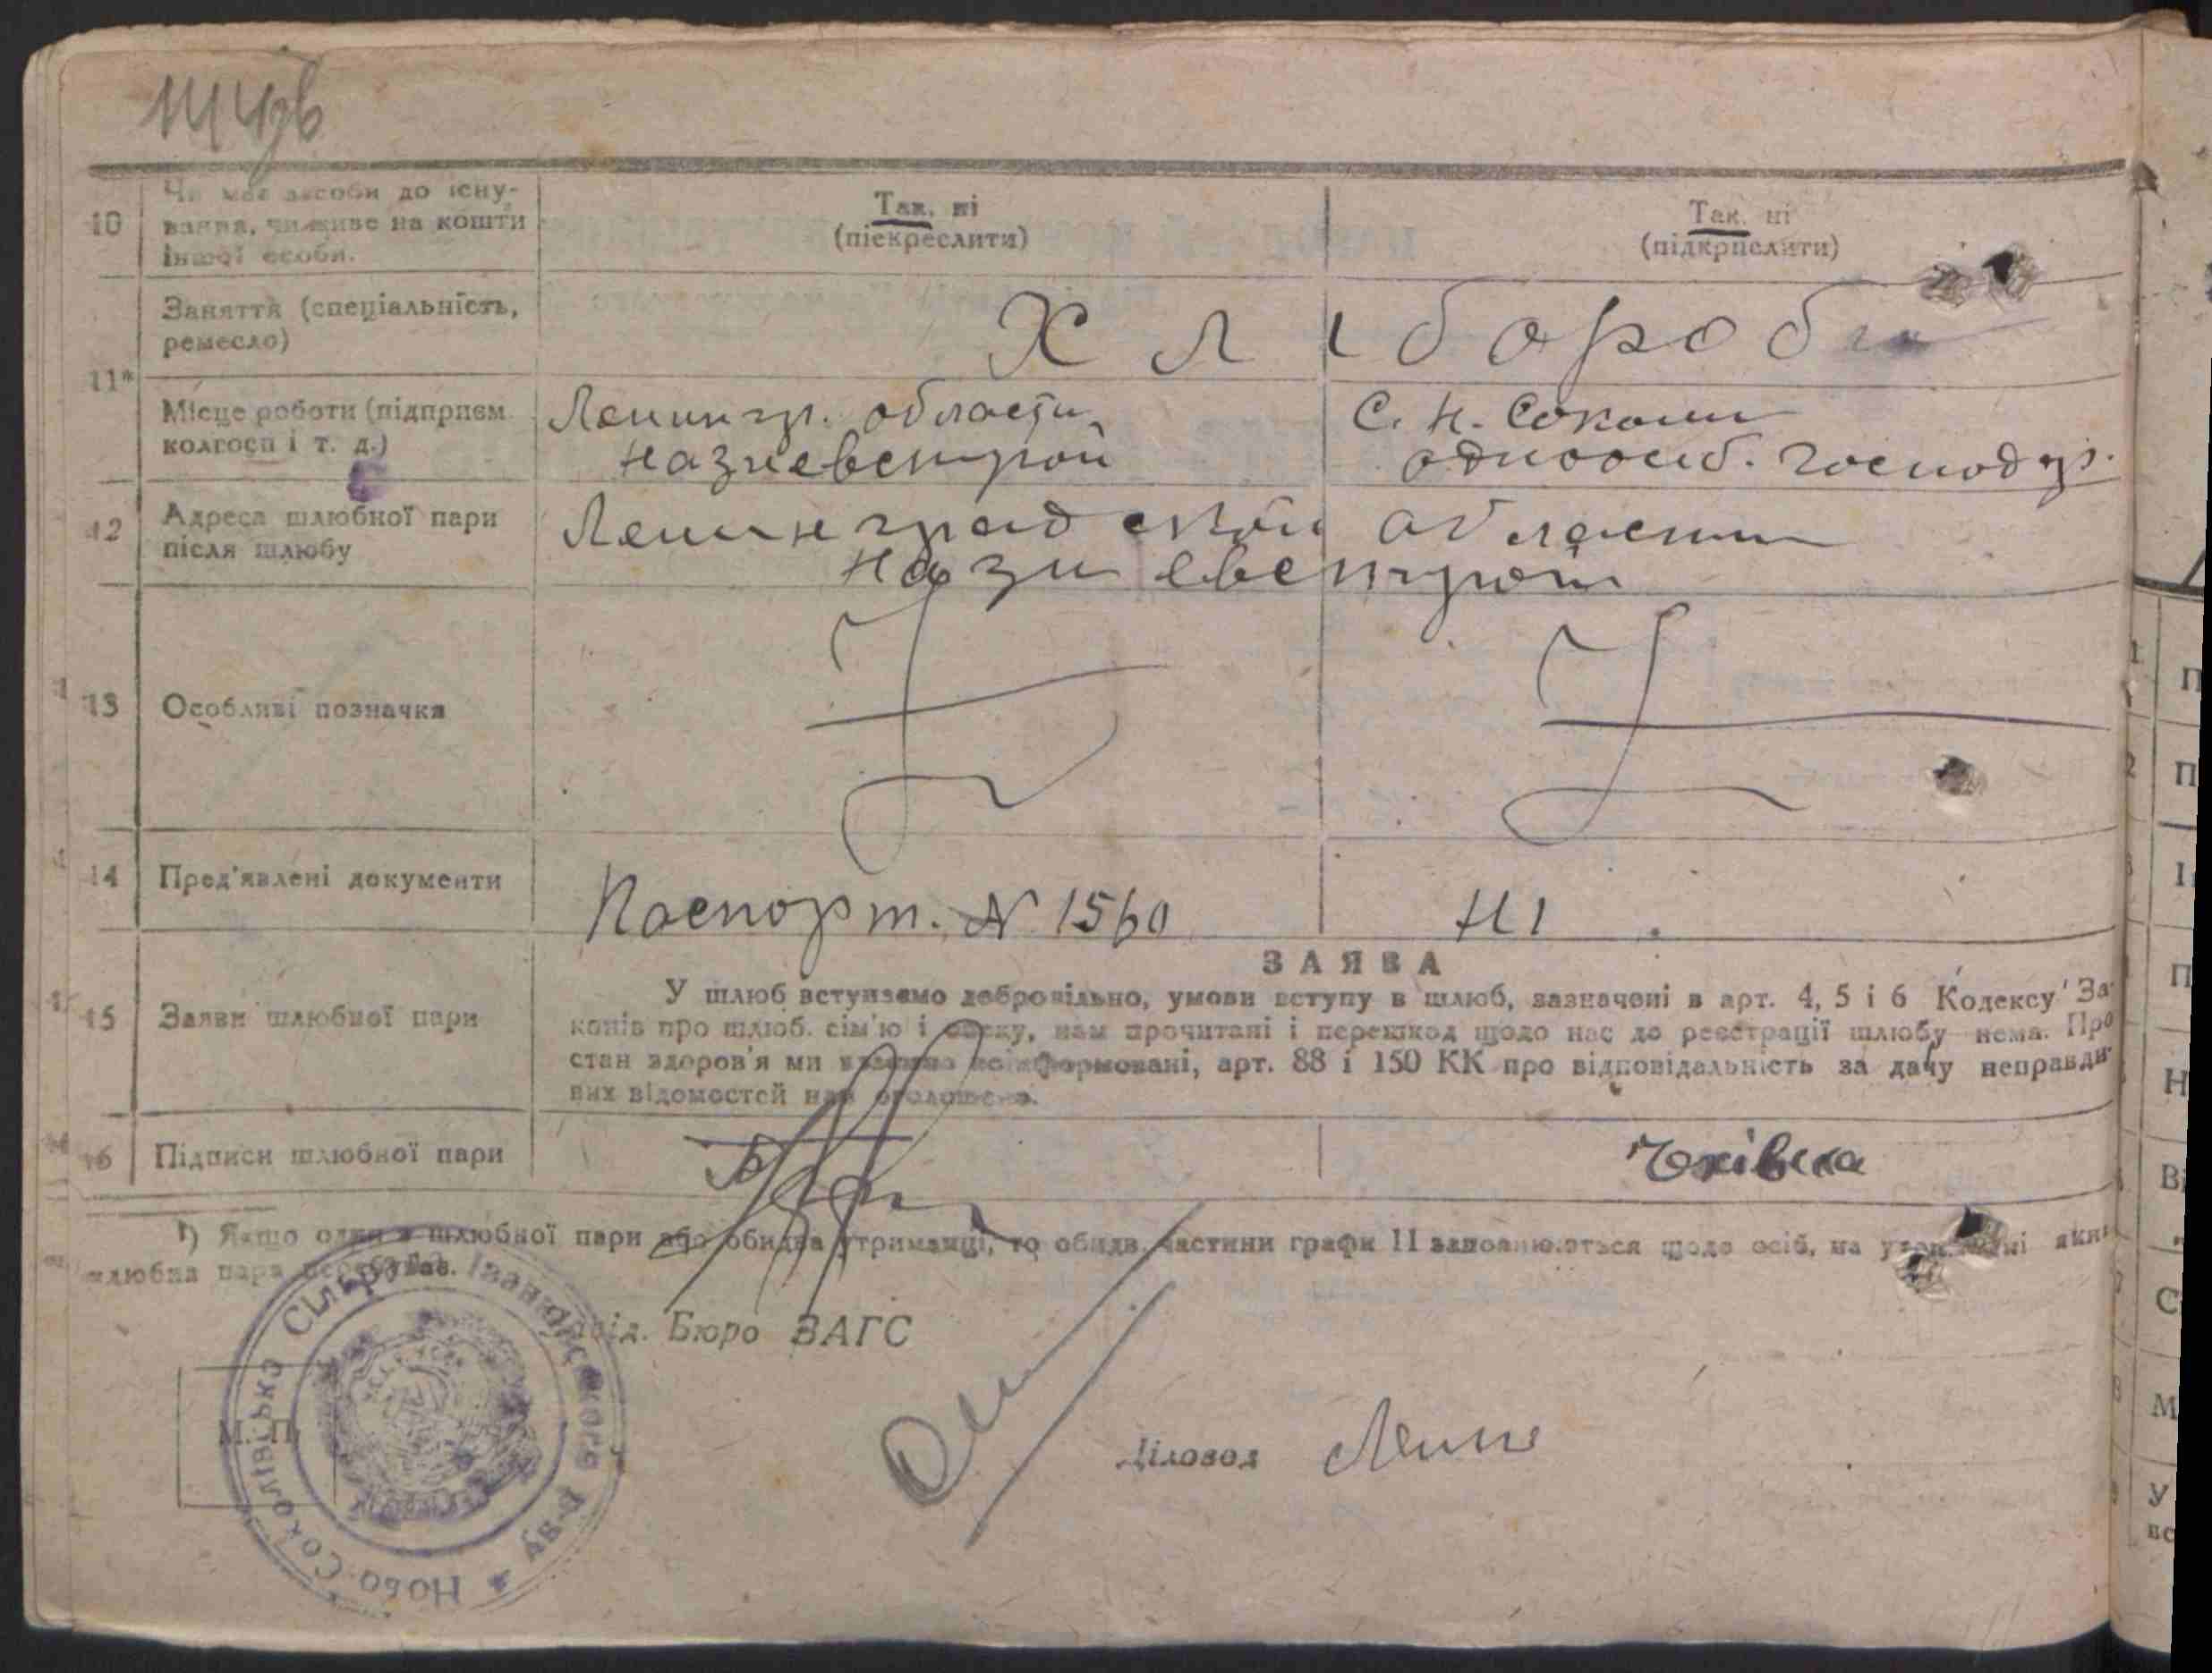 10 Чи має засоби до існу-
вання, чи живе на кошти
іншої особи.
Так, ні
(піскреслити)
Так, ні
(підкрислити)
11*
Заняття (спеціальність,
ремесло)
Хлібороби
Місце роботи (підприєм.
колгосп і т. д.)
Ленингр. области
Назиевстрой
С. Н. Соколи
одноосіб. господар.
12 Адреса шлюбної пари
після шлюбу
Ленинградской области
Назиевстрой
13 Особливі позначки
14 Пред'явлені документи
Паспорт. № 1560
Ні
15 Заяви шлюбної пари
ЗАЯВА
У шлюб вступаємо добровільно, умови вступу в шлюб, зазначені в арт. 4, 5 і 6 Кодексу За-
конів про шлюб, сім'ю і опеку, нам прочитані і перешкод щодо нас до реєстрації шлюбу нема. Про
стан здоров'я ми взаємно поінформовані, арт. 88 і 150 КК про відповідальність за дачу неправди-
вих відомостей нам оголошено.
16 Підписи шлюбної пари
1) Якщо один з шлюбної пари або обидва утриманці, то обидв. частини графи 11 заповнюються щодо осіб, на утриманні яких
шлюбна пара перебуває.
Завід. Бюро ЗАГС
М. П.
Діловод
Ново-Соколівська Сільрада Іванівського р-ву